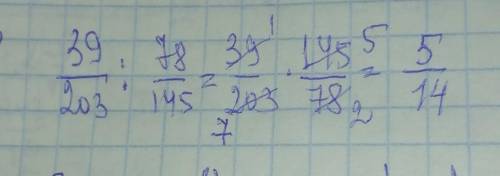 39/203 : 78/145 = 39 1/203 7 · 145 5/78 2 = 5/14